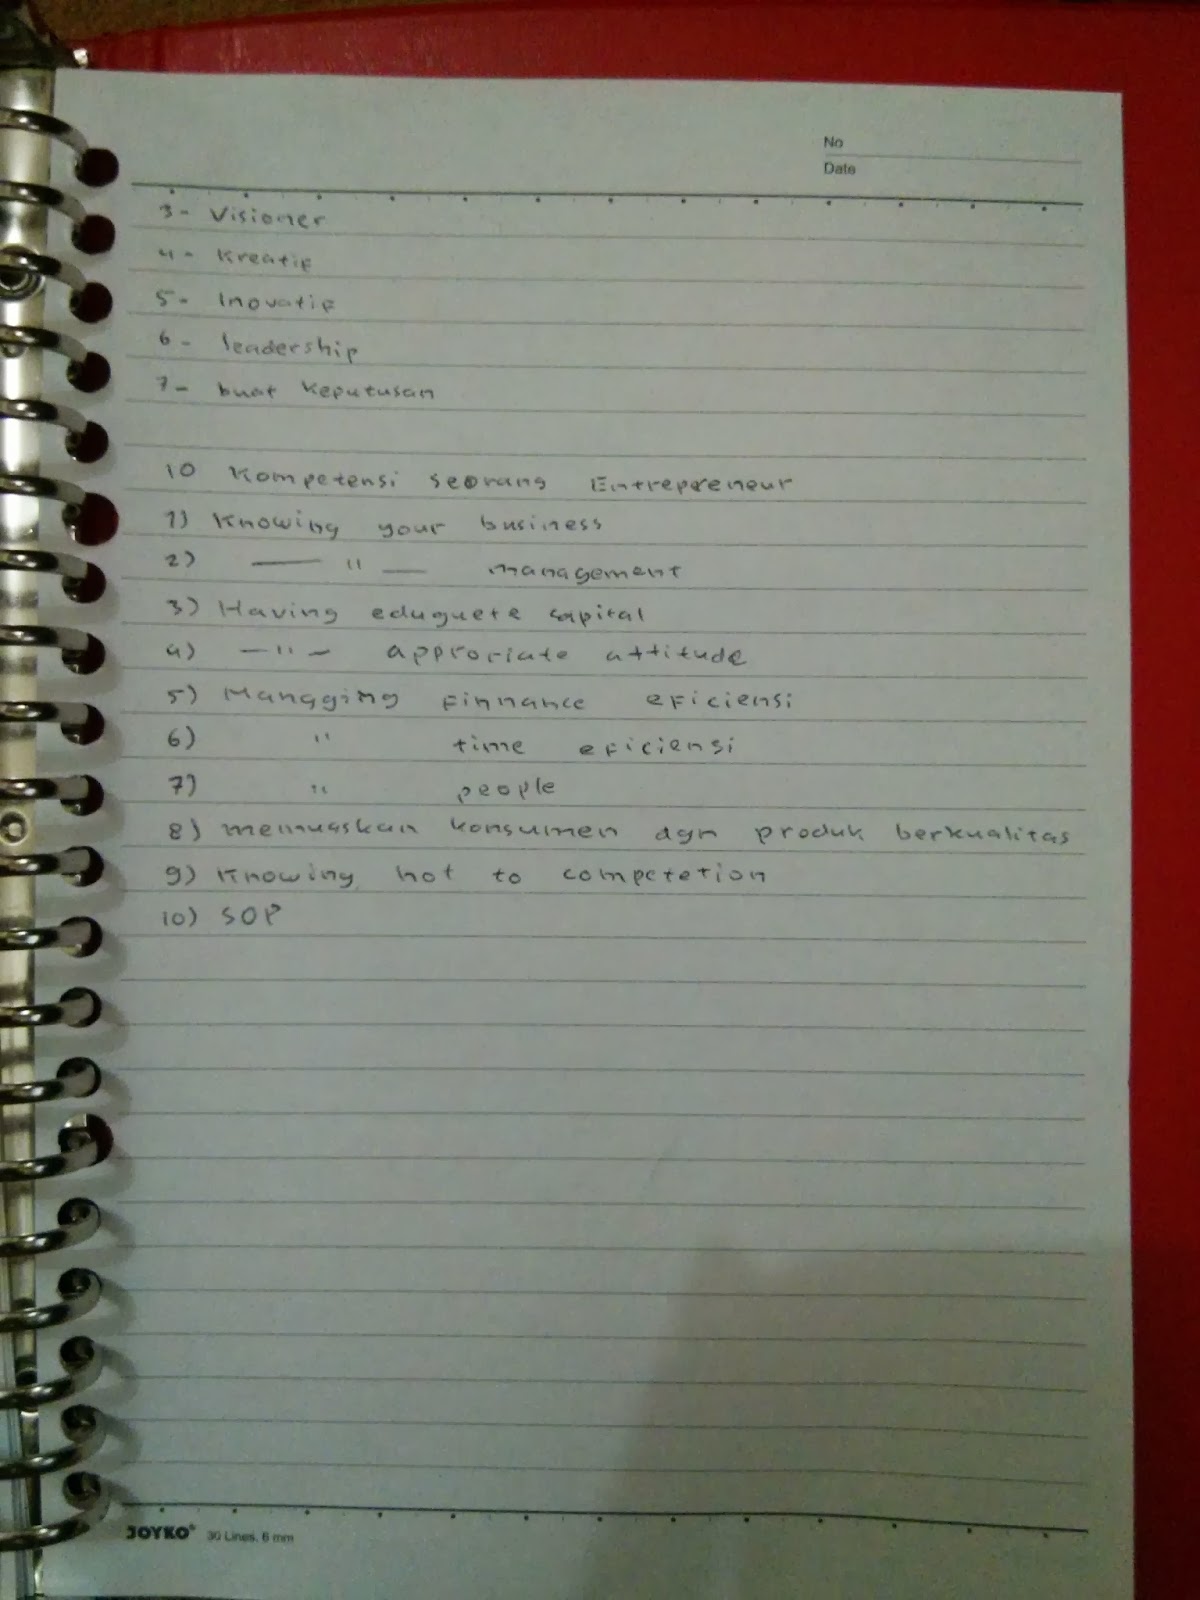 No
Date
3- Visioner
4- Kreatif
5- Inovatif
6- leadership
7- buat keputusan
10 Kompetensi seorang Entrepreneur
1) Knowing your business
2) — " — management
3) Having eduguete capital
4) — " — approriate attitude
5) Mangging Finnance eficiensi
6) " time eficiensi
7) " people
8) memuaskan konsumen dgn produk berkualitas
9) Knowing hot to competetion
10) SOP
JOYKO® 30 Lines, 6 mm